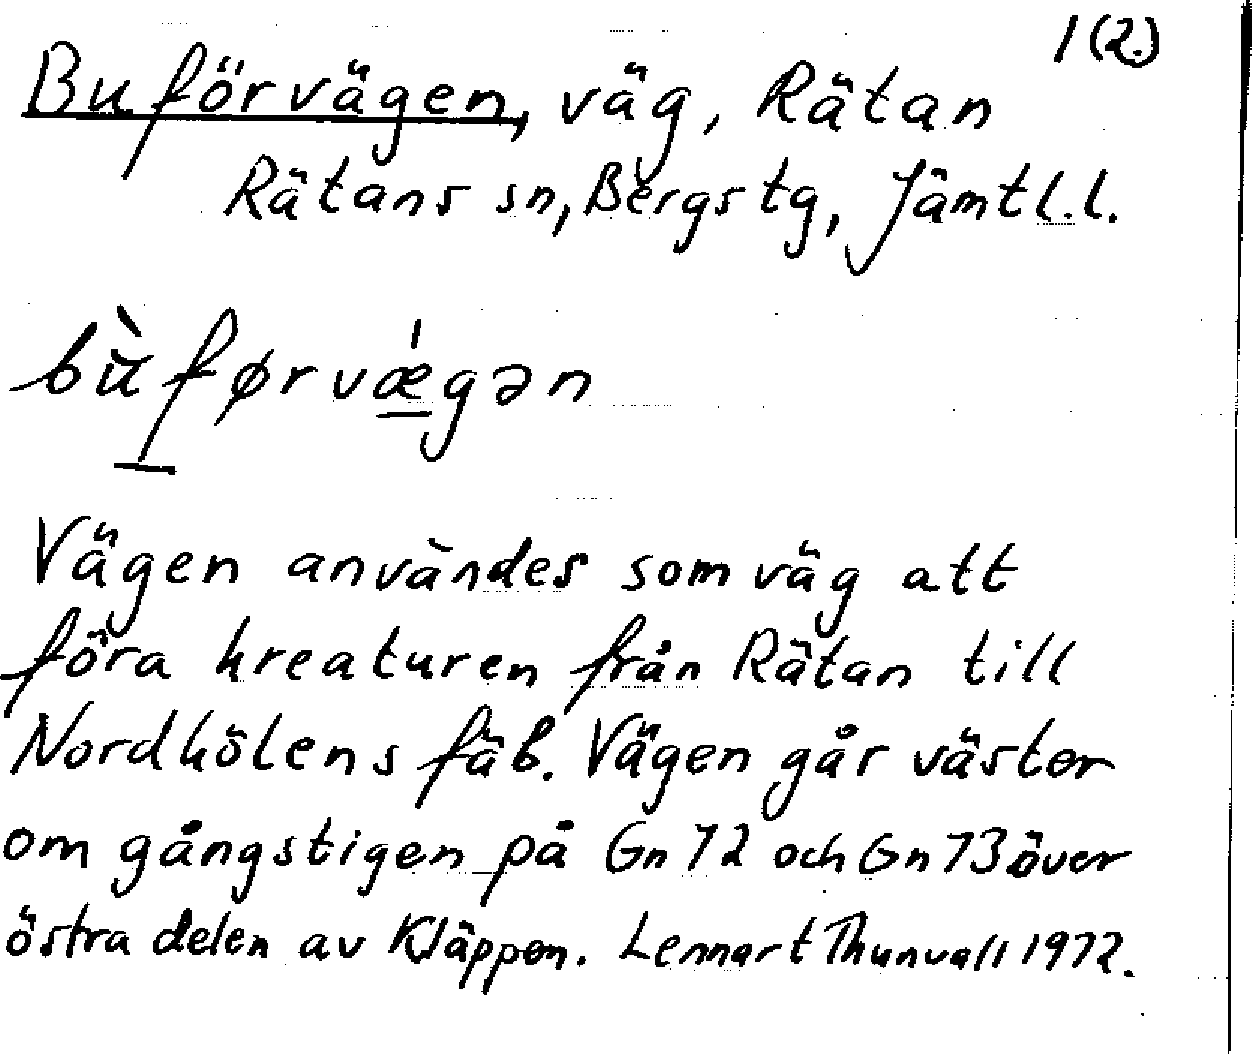 1(2)
Buförvägen, väg, Rätan
Rätans sn, Bergs tg, Jämtl.l.
bùførvǽgən
Vägen användes som väg att
föra kreaturen från Rätan till
Nordhölens fäb. Vägen går väster
om gångstigen på Gn 72 och Gn 73 över
östra delen av Kläppen. Lennart Thunvall 1972.